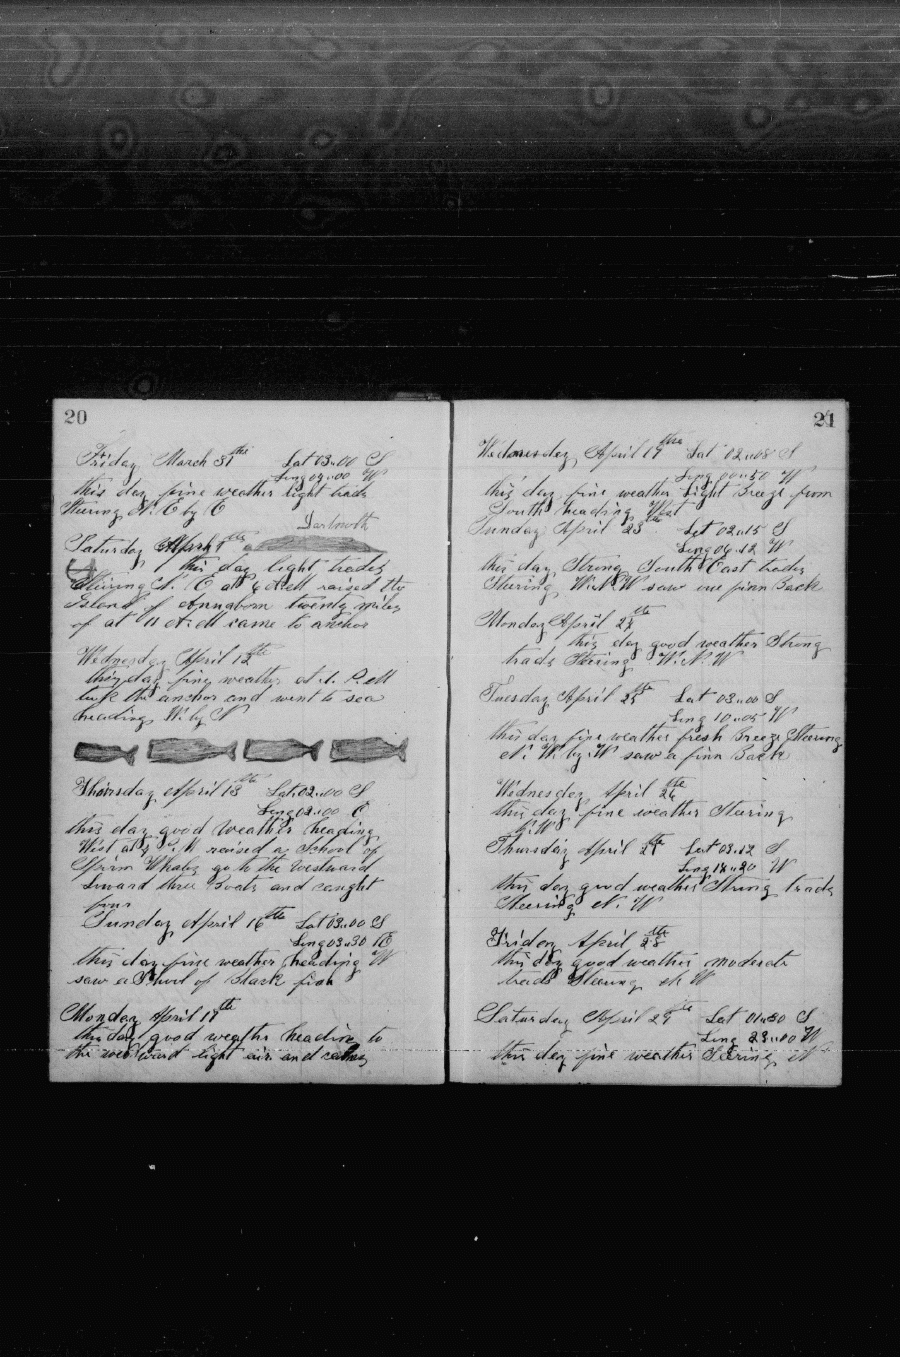 20
Friday March 31th Lat 03..00 S
Long 09..00 W
this day fine weather light trade
Steering N. E by E
Saturday April 1th
this day light trades
Steering N. E at 6 A.M raised the
Island of Annabom twenty miles
of at 11 A.M came to anchor
Wednesday April 12th
this day fine weather at 1. P.M
the anchor and went to sea
heading W. by N
Thursday April 13th Lat 02..00 S
Long 02..00 E
this day good weather heading
West at 4 P.M raised a School of
Sperm Whales go to the westward
Loward three Boats and caught
four
Sunday April 16th Lat 03..00 S
Long 03..30 E
this day fine weather heading W
saw a School of Black fish
Monday April 17th
this day good weather heading to
the westward light airs and calms
21
Wednesday April 19th Lat 02..08 S
Long 00..50 W
this day fine weather light Breeze from
South heading West
Sunday April 23th Lat 02..15 S
Long 06..12 W
this day Strong South East trades
Steering W.N.W saw one finn Back
Monday April 24th
this day good weather Strong
trade Steering W.N.W
Tuesday April 25th Lat 03..00 S
Long 10..05 W
this day fine weather fresh Breeze Steering
N. W. by. W saw a finn Back
Wednesday April 26th
this day fine weather Steering
N.W
Thursday April 27th Lat 03..12 S
Long 18..20 W
this day good weather Strong trade
Steering N. W
Friday April 28th
this day good weather moderate
trade Steering N W
Saturday April 29th Lat 01..30 S
Long 23..00 W
this day fine weather Steering N